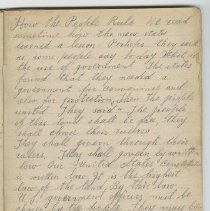 How The People Rule. We read
sometime how the new state
learned a lesson. Perhaps they said
as some people say to day What is
the use of government. The states
found that they needed a
government for convenience and
also for protection. Then the people
united. They said - The people
of this land shall be free they
shall choose their rulers
They shall govern through their
rulers. They shall govern by written
law. Our United States Constitution
is written law it is the highest
law of the land. By this law,
U.S. government officers must be
chosen by the people. They must be